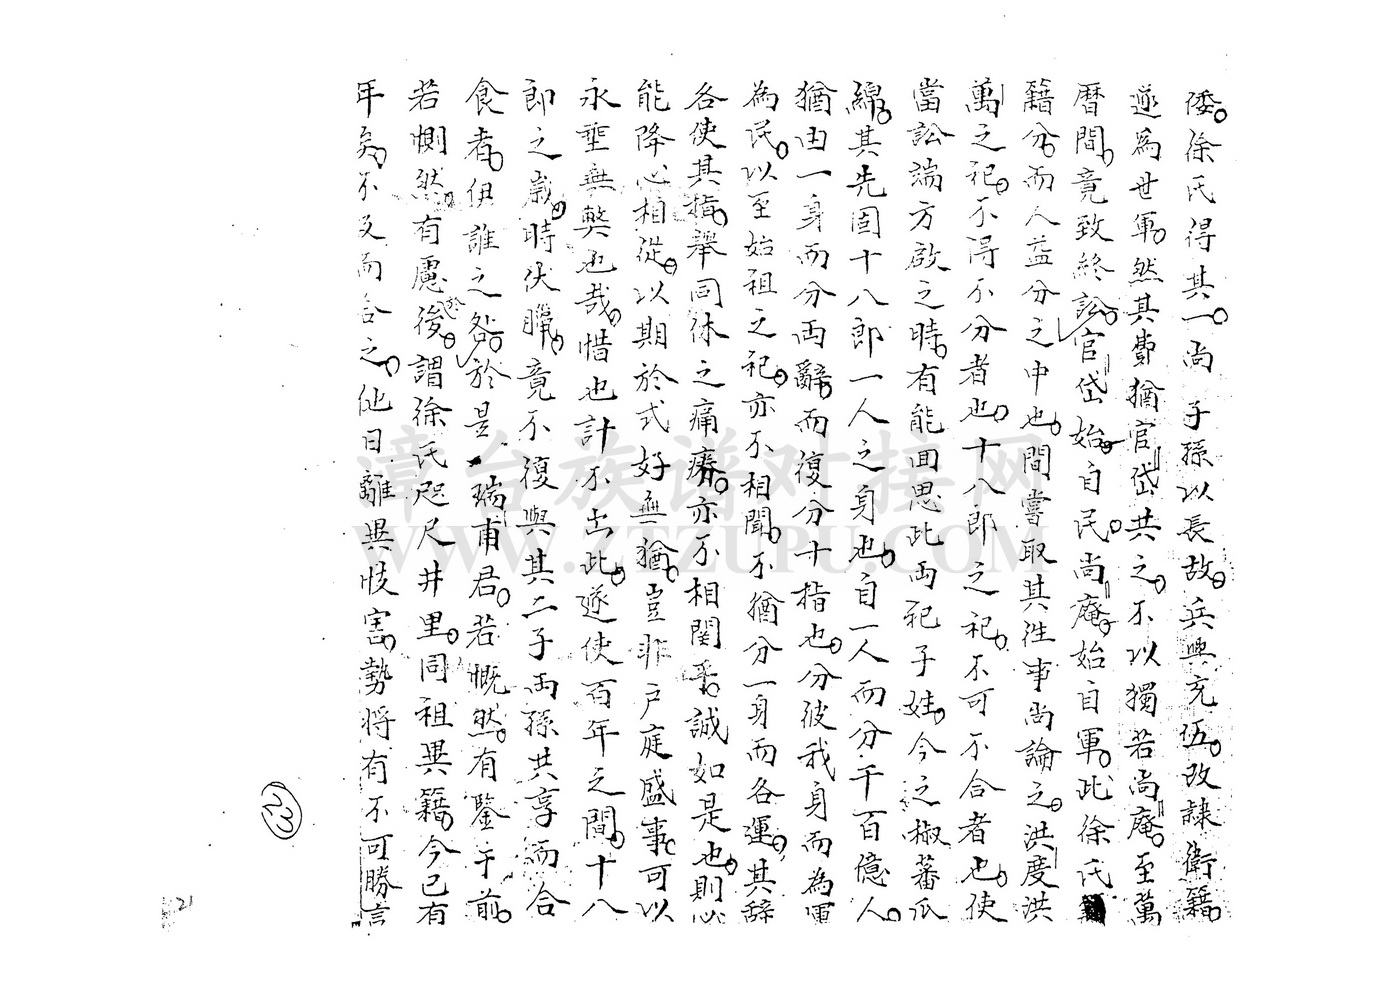 倭。徐氏得其一。尚子孫以長故。兵興充伍。改隸衛籍。
遂為世軍。然其費猶官岱共之。不以獨若尚庵。至萬
曆間。竟致終訟。官岱始自民。尚庵始自軍。此徐氏
籍分。而人益分之中也。間嘗取其往事尚論之。洪度洪
萬之祀。不得不分者也。十八郎之祀。不可不合者也。使
當訟端方啟之時。有能回思此両祀子姓。今之椒蕃瓜
綿。其先固十八郎一人之身也。自一人而分千百億人。
猶由一身而分両臂。而復分十指也。分彼我身而為軍
為民。以至始祖之祀。亦不相聞。不猶分一身而各運。其辭
各使其指。舉同休之痛癢。亦不相関乎。誠如是也。則必
能降心相從。以期於式好無猶。豈非戶庭盛事。可以
永垂無獘也哉。惜也計不出此。遂使百年之間。十八
郎之嵗時伏臘。竟不復與其二子両孫共享而合
食者。伊誰之咎。於是瑞甫君。若慨然。有鑒于前。
若惻然。有慮後。謂徐氏咫尺井里。同祖異籍。今已有
年矣。不及而合之。他日離異忮害。勢将有不可勝言
23
21
漳台族谱对接网
WWW.ZTZUPU.COM